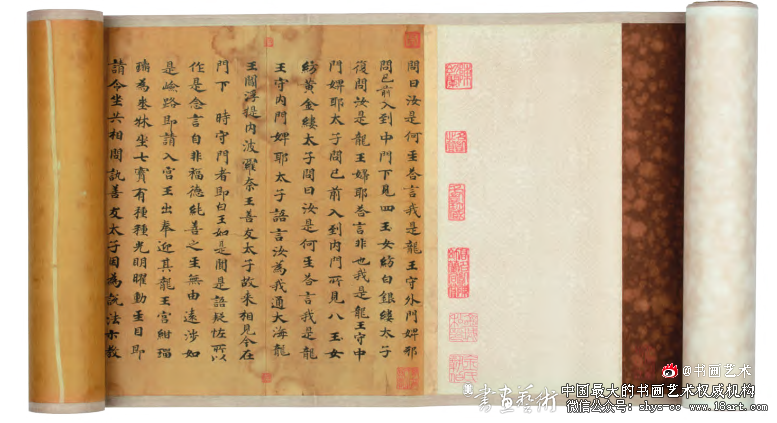 問曰汝是何𤯔荅言我是龍王守外門婢邪
問已前入到中門下見四玉女紡白銀縷太子
復問汝是龍王婦耶荅言非也我是龍王守中
門婢耶太子問已前入到內門所見八玉女
紡黃金縷太子問曰汝是何𤯔荅言我是龍
王守內門婢耶太子語言汝為我通大海龍
王閻浮提內波羅奈王善友太子故來相見今在
門下 時守門者即白王如是聞是語疑怪所以
作是念言自非福德純善之𤯔無由遠涉如
是嶮路即請入宮王出奉迎其龍王宮紺瑠
璃為埊牀坐七寶有種種光明曜動𤯔目即
請令坐共相問訊善友太子因為說法示教
@书画艺术
書畫藝術
中国最大的书画艺术权威机构
微信公众号：shys-cc www.18art.com